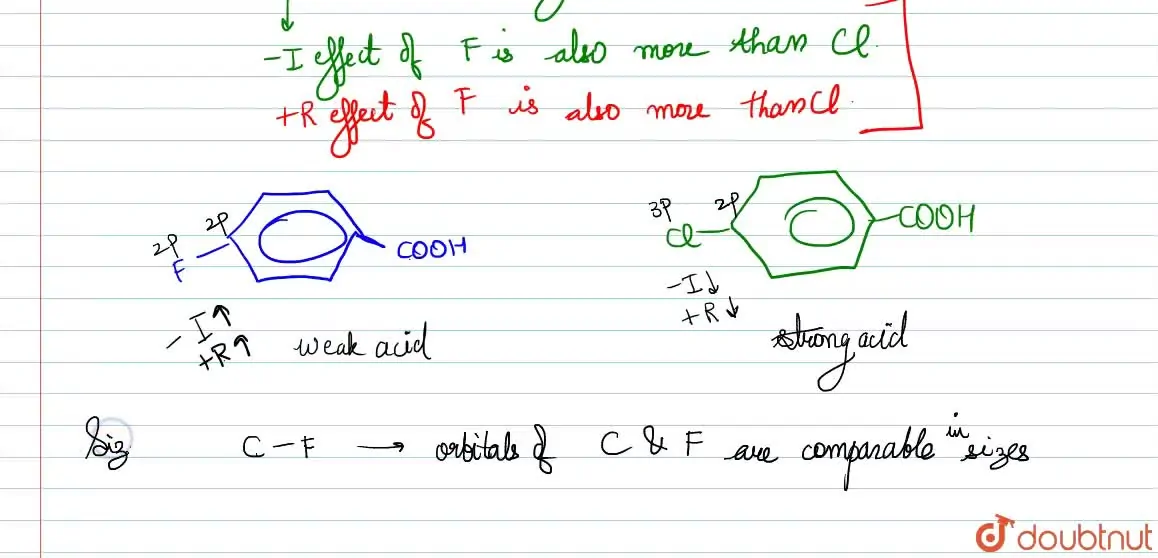 -I effect of F is also more than Cl.
+R effect of F is also more than Cl.
2p 2p
F COOH
3p 2p
Cl COOH
-I↑
+R↑ weak acid
-I↓
+R↓
strong acid
Siz C-F → orbitals of C & F are comparable in sizes
doubtnut